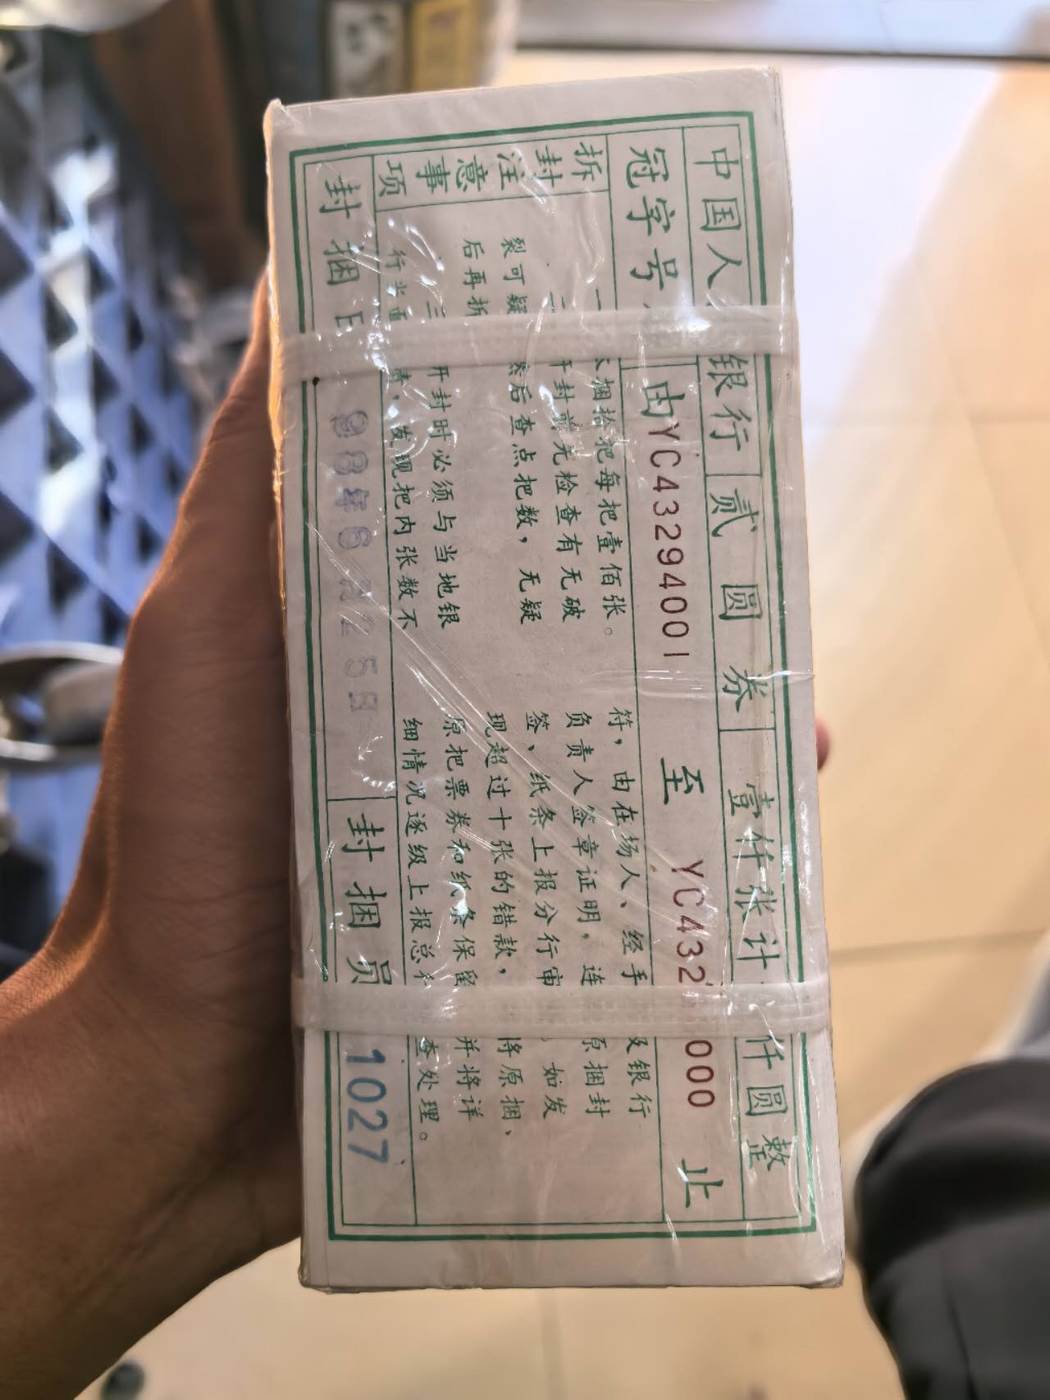 中国人 银行 贰圆券 壹仟张计 仟圆整
冠字号 由YC43294001 至 YC432 000 止
拆封注意事项
捆拾把每把壹佰张。
开封前先检查有无破
裂可疑 然后查点把数，无疑
后再拆
三 开封时必须与当地银
行当面 发现把内张数不
符，由在场人、经手 及银行
负责人签章证明，连 原捆封
签、纸条上报分行审 如发
现超过十张的错款， 将原捆、
原把票券和纸条保留 并将详
细情况逐级上报总行 查处理。
封捆日 封捆员 1027